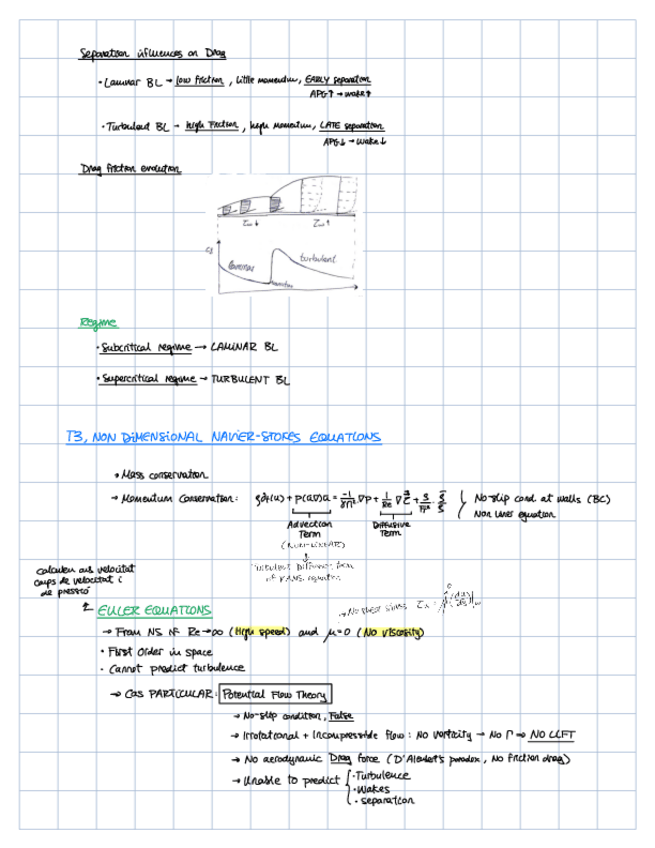 Separation influences on Drag
· Laminar BL → low friction, little momentum, EARLY separation
APG↑ → wake↑
· Turbulent BL → high friction, high momentum, LATE separation
APG↓ → wake↓
Drag friction evolution
τw ↓ τw ↑
cf
laminar
turbulent
transition
Regime
· Subcritical regime → LAMINAR BL
· Supercritical regime → TURBULENT BL
T3, NON DIMENSIONAL NAVIER-STOKES EQUATIONS
→ Mass conservation
→ Momentum Conservation:
No-slip cond at walls (BC)
Non liner equation
Advection Term
(NON-LINEAR)
Diffusive Term
Turbulent
of RANS equation
calculen aus velocitat
camps de velocitat i
de pressió
EULER EQUATIONS
→ No shear stress
→ From NS if Re→∞ (High speed) and μ=0 (No viscosity)
· First Order in space
· Cannot predict turbulence
→ Cas PARTICULAR: Potential Flow Theory
→ No-slip condition, False
→ Irrotational + Incompressible flow: No vorticity → No Γ ⇒ NO LIFT
→ No aerodynamic Drag force (D'Alembert's paradox, No friction drag)
→ Unable to predict { · Turbulence
· Wakes
· separation